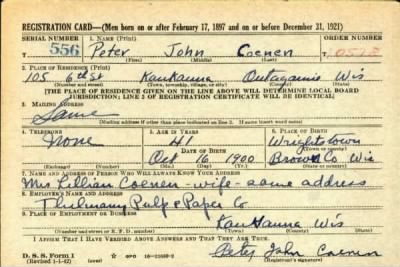 REGISTRATION CARD—(Men born on or after February 17, 1897 and on or before December 31, 1921)
SERIAL NUMBER 1. NAME (Print) ORDER NUMBER
556 Peter John Coenen
(First) (Middle) (Last)
2. PLACE OF RESIDENCE (Print)
105 6th St Kaukauna Outagamie Wis
(Number and street) (Town, township, village, or city) (County) (State)
[THE PLACE OF RESIDENCE GIVEN ON THE LINE ABOVE WILL DETERMINE LOCAL BOARD
JURISDICTION; LINE 2 OF REGISTRATION CERTIFICATE WILL BE IDENTICAL]
3. MAILING ADDRESS
Same
[Mailing address if other than place indicated on line 2. If same insert word same]
4. TELEPHONE 5. AGE IN YEARS 6. PLACE OF BIRTH
None 41 Wrightstown
DATE OF BIRTH (Town or county)
Oct 16 1900 Brown Co Wis
(Exchange) (Number) (Mo.) (Day) (Yr.) (State or country)
7. NAME AND ADDRESS OF PERSON WHO WILL ALWAYS KNOW YOUR ADDRESS
Mrs Lillian Coenen - wife - same address
8. EMPLOYER'S NAME AND ADDRESS
Thilmany Pulp & Paper Co
9. PLACE OF EMPLOYMENT OR BUSINESS
Kaukauna Wis
(Number and street or R. F. D. number) (Town) (County) (State)
I AFFIRM THAT I HAVE VERIFIED ABOVE ANSWERS AND THAT THEY ARE TRUE.
D. S. S. Form 1 GPO Peter John Coenen
(Revised 1-1-42) (over) (Registrant's signature)